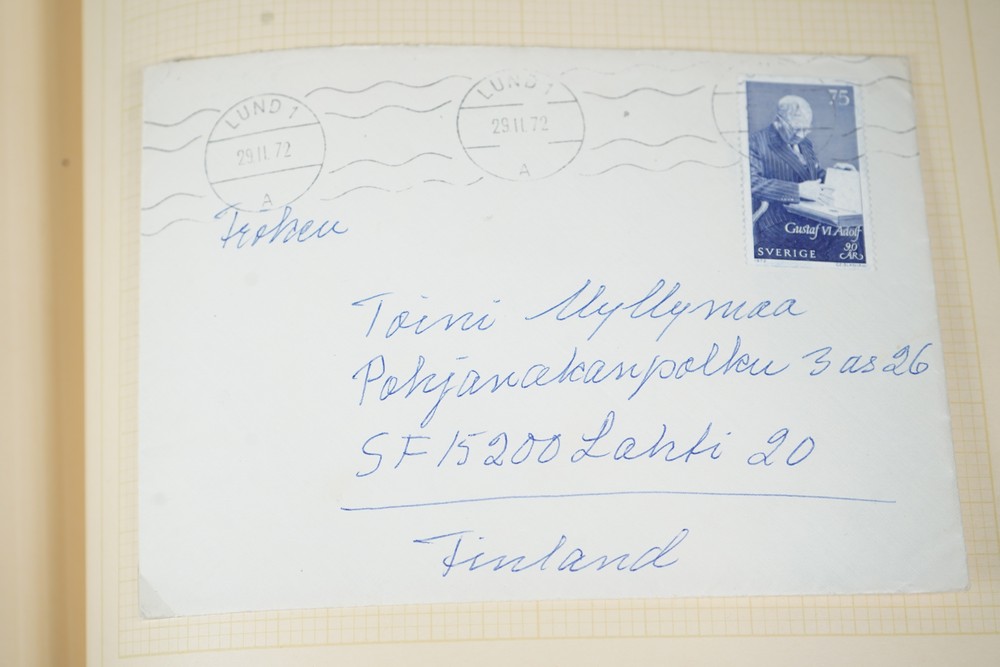 LUND 1
29.11.72
A
LUND 1
29.11.72
A
75
Gustaf VI Adolf
90
ÅR
SVERIGE
Fröken
Toini Myllymaa
Pohjanakanpolku 3 as 26
SF 15200 Lahti 20
Finland